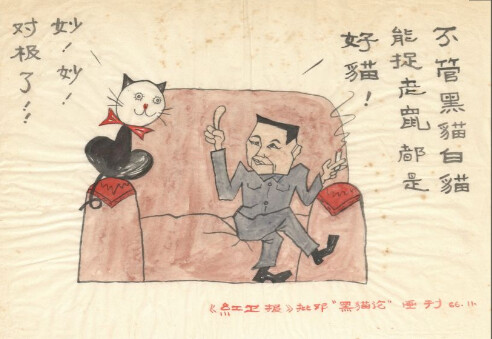 不管黑貓白貓
能捉老鼠都是
好貓！
妙！妙！
对极了！！
《紅卫报》批邓"黑貓论"画刊 66.11